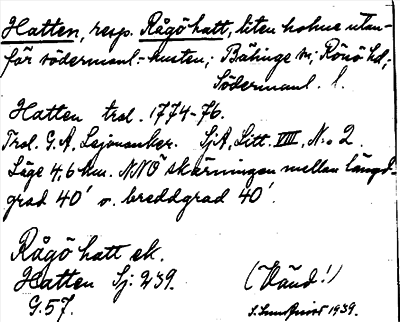 Hatten, resp. Rågö hatt, liten holme utan-
för södermanl.-kusten; Bälinge sn; Rönö hd;
Södermanl. l.
Hatten trol. 1774-76.
Trol. G.A. Lejonanker. SjA, Litt. VIII, N:o 2.
Läge 4,6 km. NNÖ skärningen mellan längd-
grad 40' o. breddgrad 40'.
Rågö hatt ek.
Hatten Sj: 239. (Vänd!)
G. 57. 1939.